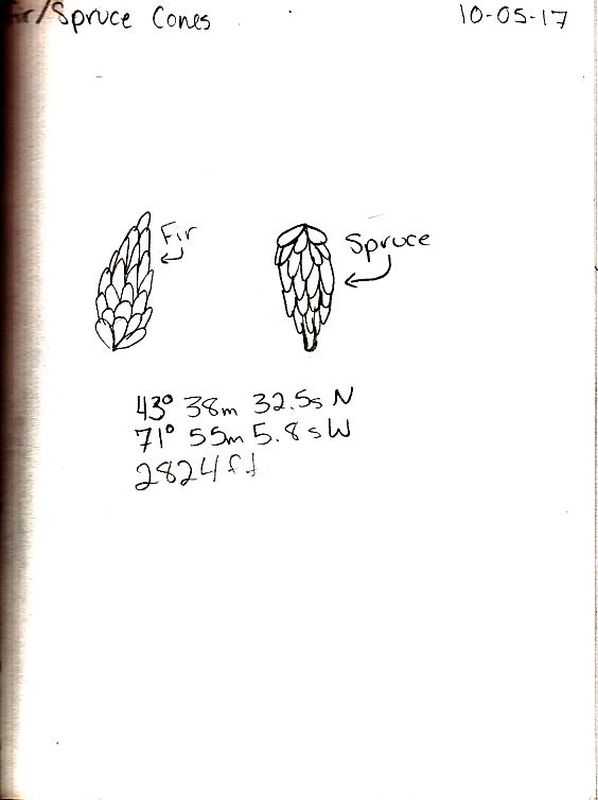 Fir/Spruce Cones 10-05-17
Fir
Spruce
43° 38m 32.5s N
71° 55m 5.8s W
2824 ft